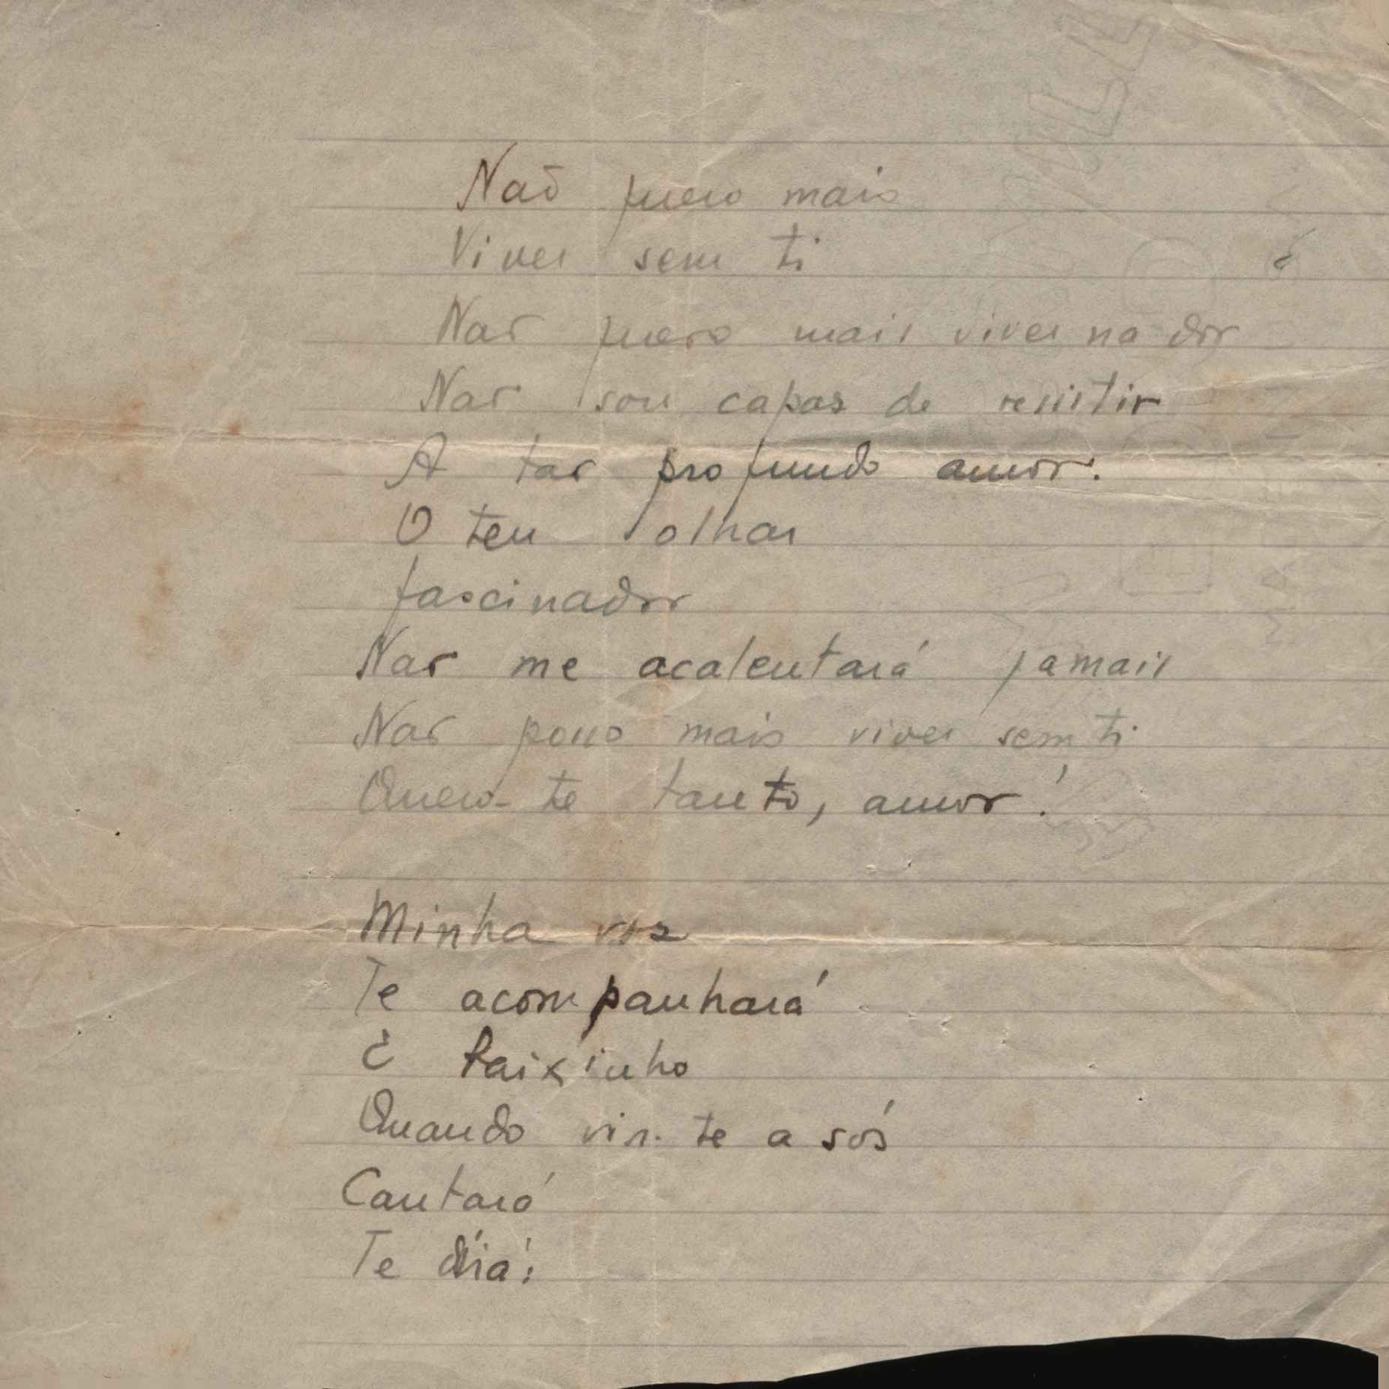 Não quero mais
Viver sem ti
Não quero mais viver na dor
Não sou capaz de resistir
A tão profundo amor.
O teu olhar
fascinador
Não me acalentará jamais
Não posso mais viver sem ti
Quero-te tanto, amor!
Minha voz
Te acompanhará
E baixinho
Quando vir-te a sós
Cantará
Te dirá: